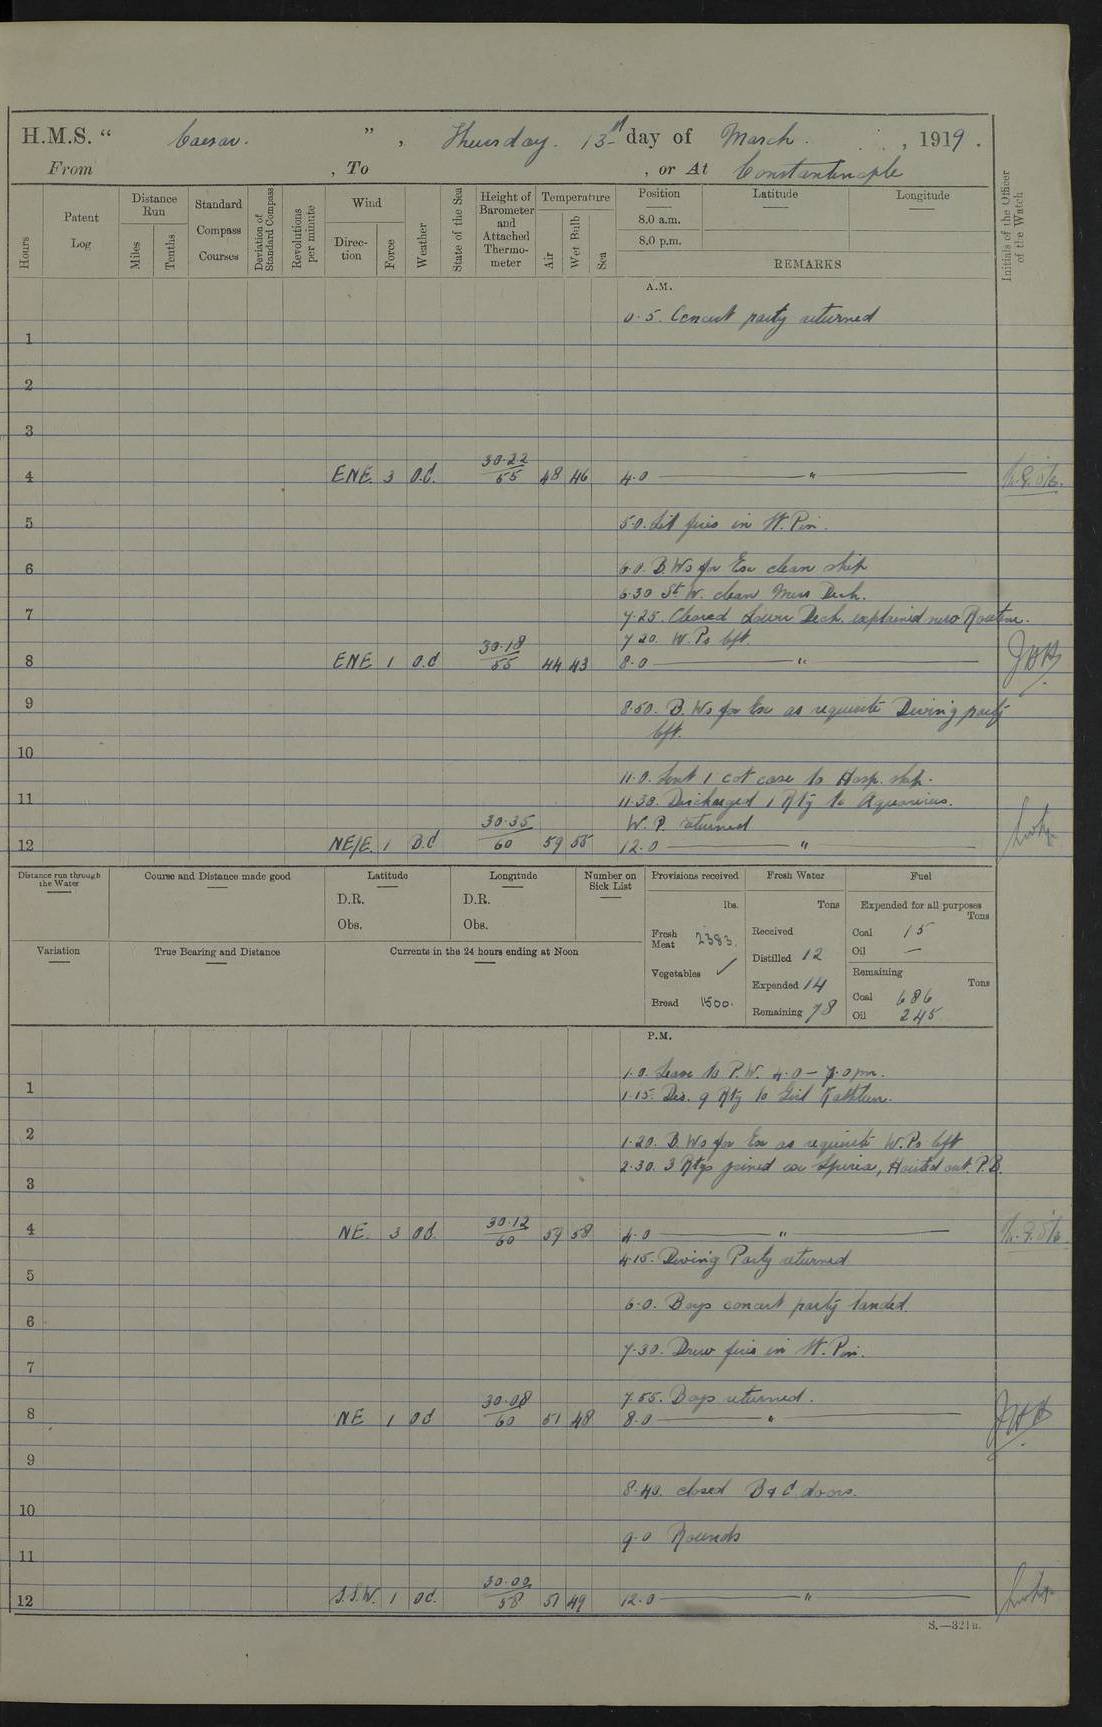 H.M.S. " Caesar. " , Thursday. 13th day of March. , 1919.
From , To , or At Constantinople
Hours
Patent Log
Distance Run
Miles
Tenths
Standard Compass Courses
Deviation of Standard Compass
Revolutions per minute
Wind
Direc-tion
Force
Weather
State of the Sea
Height of Barometer and Attached Thermo-meter
Temperature
Air
Wet Bulb
Sea
Position
8.0 a.m.
8.0 p.m.
Latitude
Longitude
REMARKS
Initials of the Officer of the Watch
A.M.
0.5. Concert party returned
1
2
3
4 ENE. 3 O.d. 30.22/55 48 46 4.0 "
5 5.0. Lit fires in W. Pin.
6 6.0. B.Ws for Ex clean ship
6.30 St. W. clean Mess Deck.
7 7.25. Cleared Lower Deck. explained new Routine.
7.20. W.Ps left.
8 ENE 1 O.d 30.18/55 44 43 8.0 " JHH
9 8.50. B.Ws for Ex as requisite Diving party
left.
10
11.0. Sent 1 cot case to Hosp. ship.
11 11.30. Discharged 1 Rtg to Aquarius.
W.P. returned
12 NE/E. 1 O.d 30.35/60 59 55 12.0 "
Distance run through the Water
Course and Distance made good
Latitude
D.R.
Obs.
Longitude
D.R.
Obs.
Number on Sick List
Provisions received
lbs.
Fresh Meat 2383.
Vegetables ✓
Bread 1500.
Fresh Water
Tons
Received
Distilled 12
Expended 14
Remaining 78
Fuel
Expended for all purposes
Tons
Coal 15
Oil —
Remaining
Tons
Coal 686
Oil 245
Variation
True Bearing and Distance
Currents in the 24 hours ending at Noon
P.M.
1.0. Leave to P.W. 4.0 – 7.0 pm.
1 1.15. Dis. 9 Rtg to Girl Kathleen.
2 1.20. B.Ws for Ex as requisite W.Ps left
2.30. 3 Rtgs joined ex Spirea, Hoisted out. P.B.
3
4 NE. 3 Od. 30.12/60 59 58 4.0 "
4.15. Diving Party returned
5
6.0. Boys concert party landed.
6
7.30. Drew fires in W. Pin.
7
7.55. Boys returned.
8 NE 1 Od 30.08/60 51 48 8.0 " JHH
9
8.40. closed B & C doors.
10
9.0 Rounds
11
12 S.S.W. 1 Od. 30.00/58 51 49 12.0 "
S.—321B.